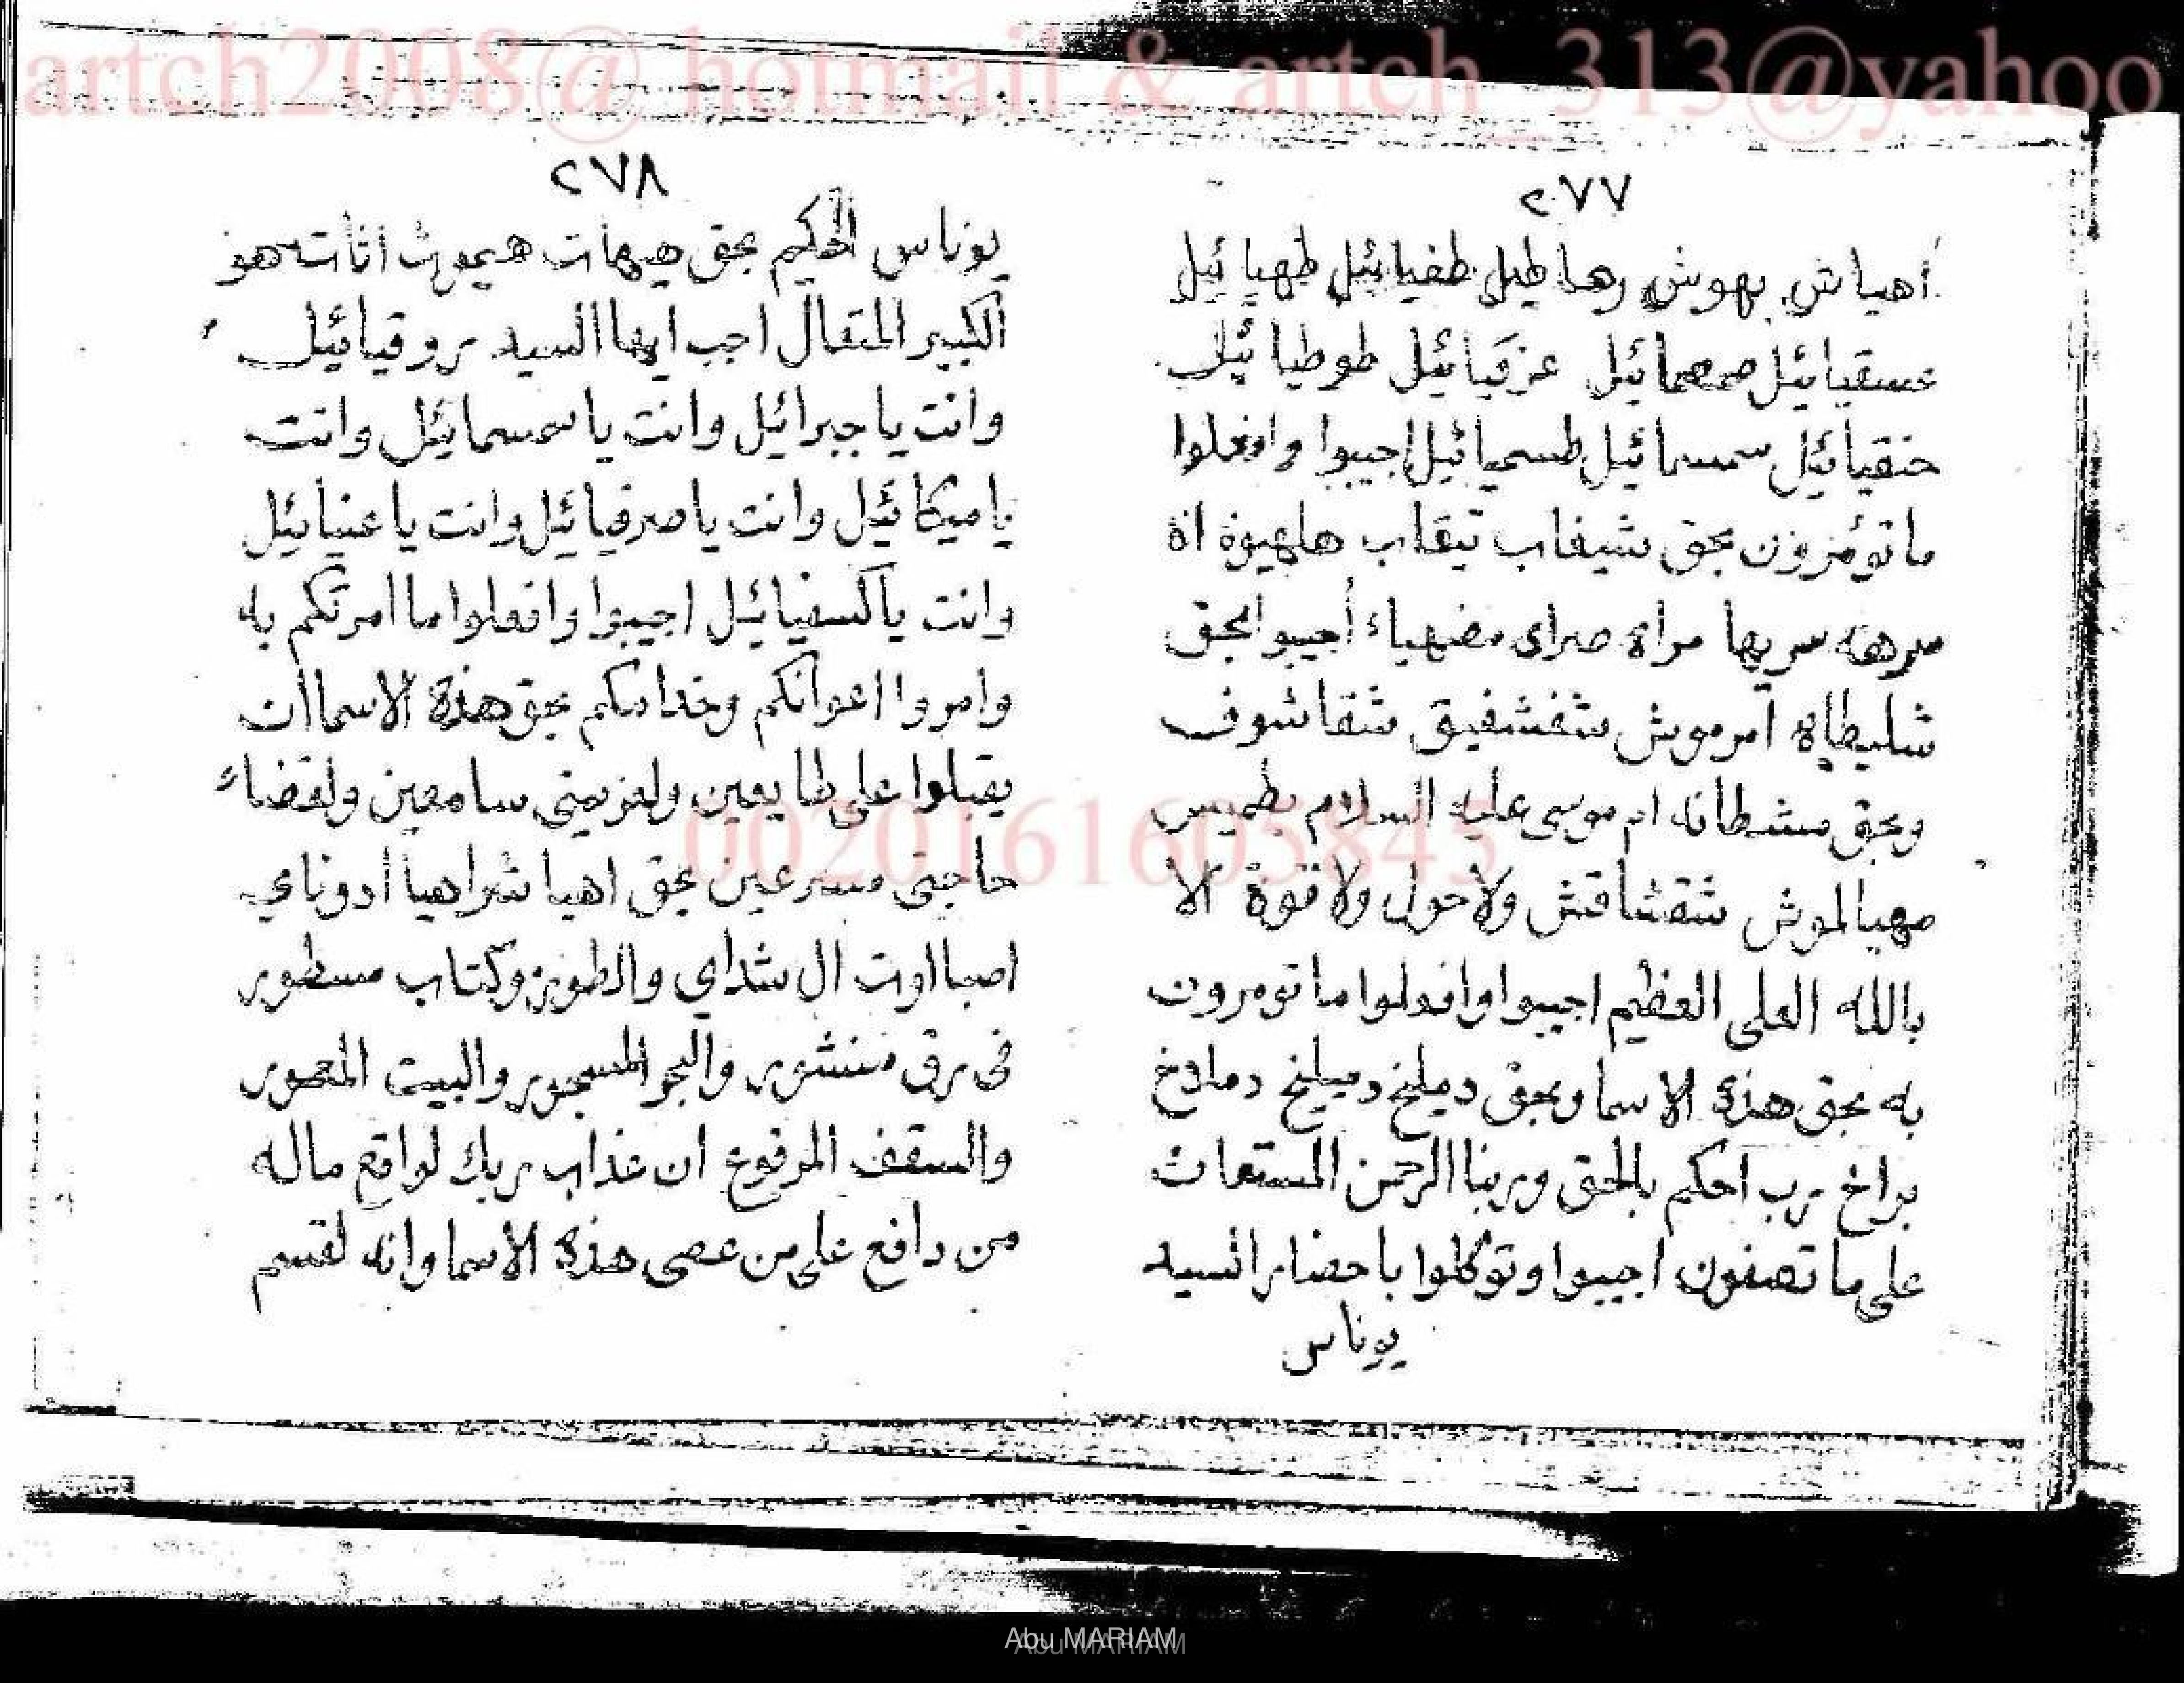 artch2008@ hotmail & artch_313@yahoo
٢٧٧
أهياش بهوش رهاطيل طفيائيل طهيائيل
عسقيائيل صمصمائيل عزقيائيل طوطيائيل
حنقيائيل سمسمائيل طسميائيل اجيبوا وافعلوا
ماتؤمرون بحق شيفاب تيقاب هلهيوة اة
سرهة سريها مراة صراى مضهياء أجيبوا بحق
شليطاه آمرموش شفشفيق شقاشوف
وبحق مشطانه ام موسى عليه السلام بطميس
مهيالموش شقشاقش ولاحول ولا قوة الا
بالله العلى العظيم اجيبوا وافعلوا ما تومرون
به بحق هذه الاسما وبحق دمليخ دميليخ دملاخ
براخ رب احكم بالحق وربنا الرحمن المستعان
على ما تصفون اجيبوا وتوكلوا باحضار السيد
يوناس
٢٧٨
يوناس الحكيم بحق هيهات هيموث اناته هو
الكبير المتعال اجب ايها السيد روقيائيل
وانت ياجبرائيل وانت يا سمسمائيل وانت
ياميكائيل وانت ياصرفيائيل وانت ياعنيائيل
وانت ياكسفيائيل اجيبوا وافعلوا ما امرتكم به
وامروا اعوانكم وخدامكم بحق هذه الاسما ان
يقبلوا على طايعين ولعزيمتى سامعين ولقضاء
حاجتى مسرعين بحق اهيا شراهيا ادوناي
اصبااوت ال شداي والطور وكتاب مسطور
فى رق منشور والبحر المسجور والبيت المعمور
والسقف المرفوع ان عذاب ربك لواقع ماله
من دافع على من عصى هذه الاسما وانه لقسم
0020161605845
Abu MARIAM